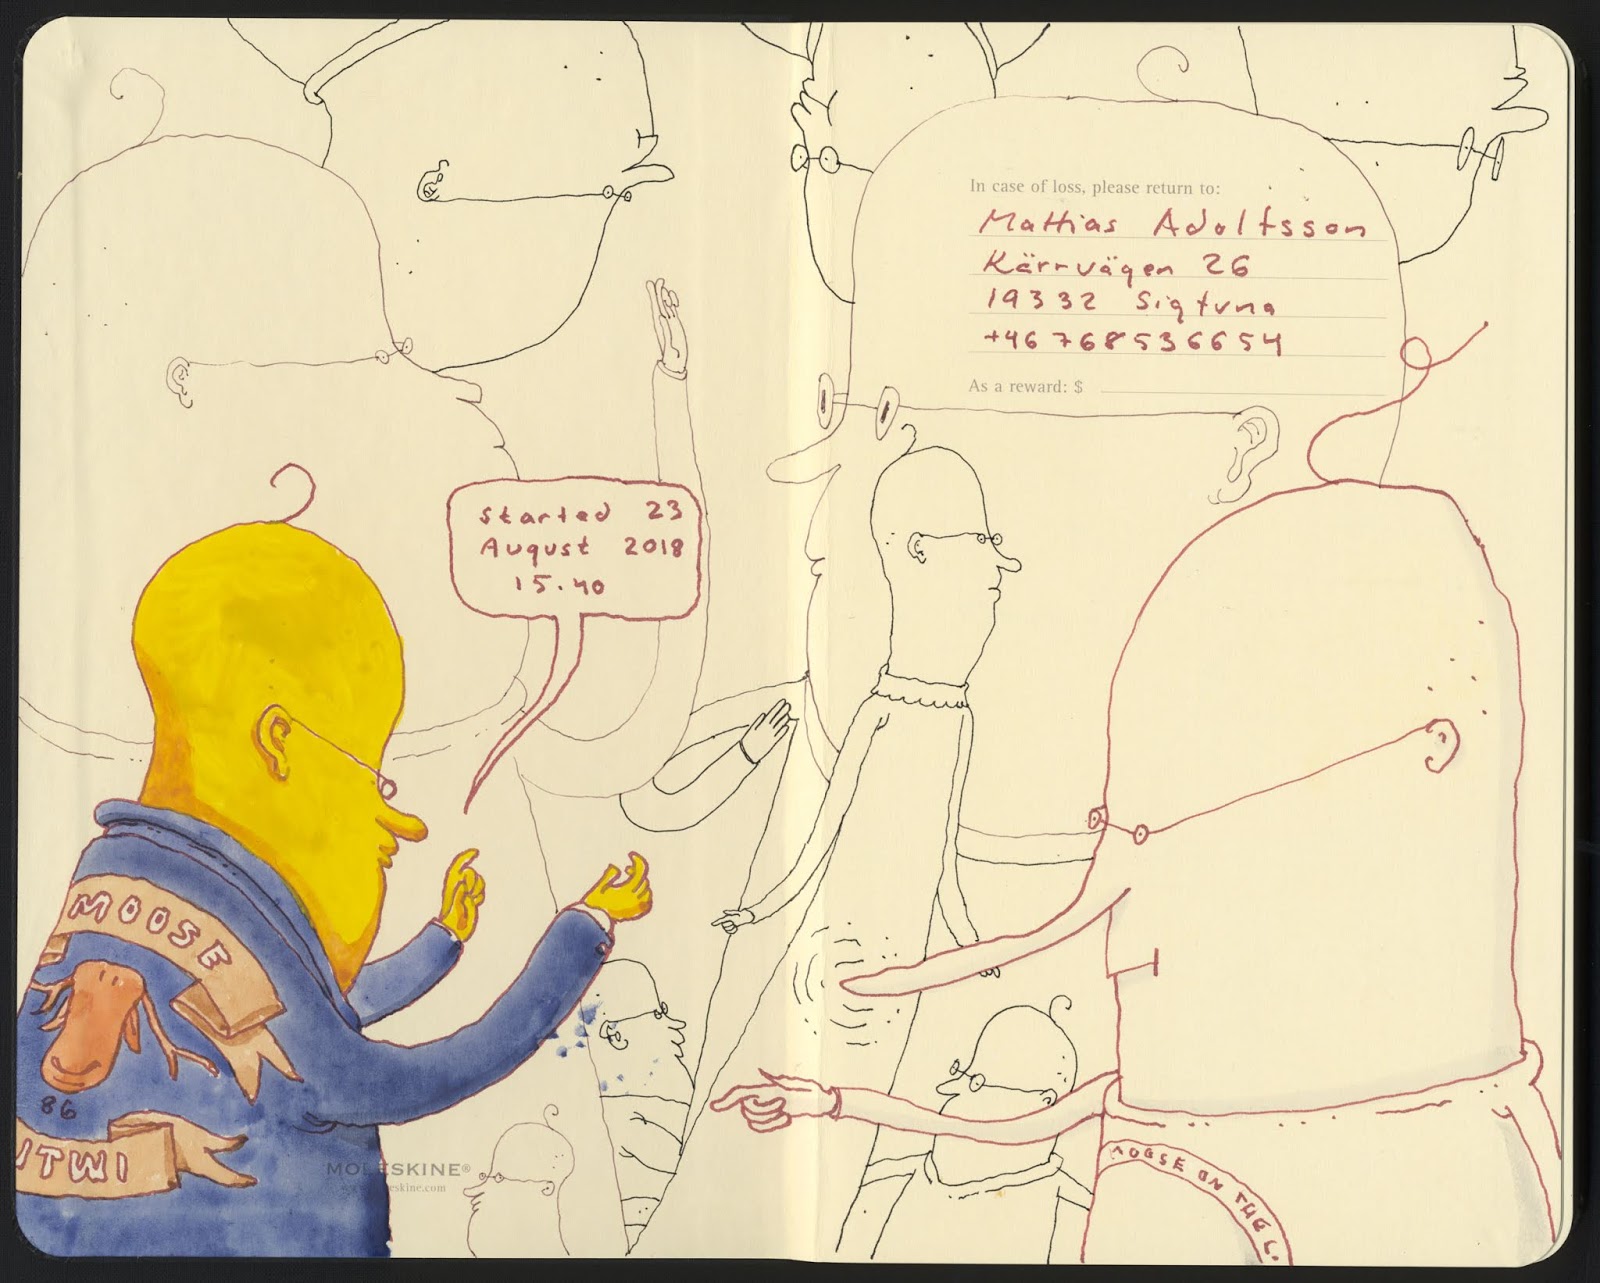 In case of loss, please return to:
Mattias Adolfsson
Kärrvägen 26
19332 Sigtuna
+46 768536654
As a reward: $
Started 23
August 2018
15.40
MOOSE
86
ITWI
MOLESKINE®
MOOSE ON THE L.